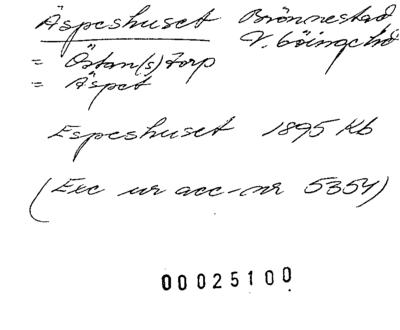 Äspeshuset Brönnestad
V. Göinge hd
= Östan(s)torp
= Äspet
Espeshuset 1895 Kb
(Exc ur acc-nr 5354)
00025100